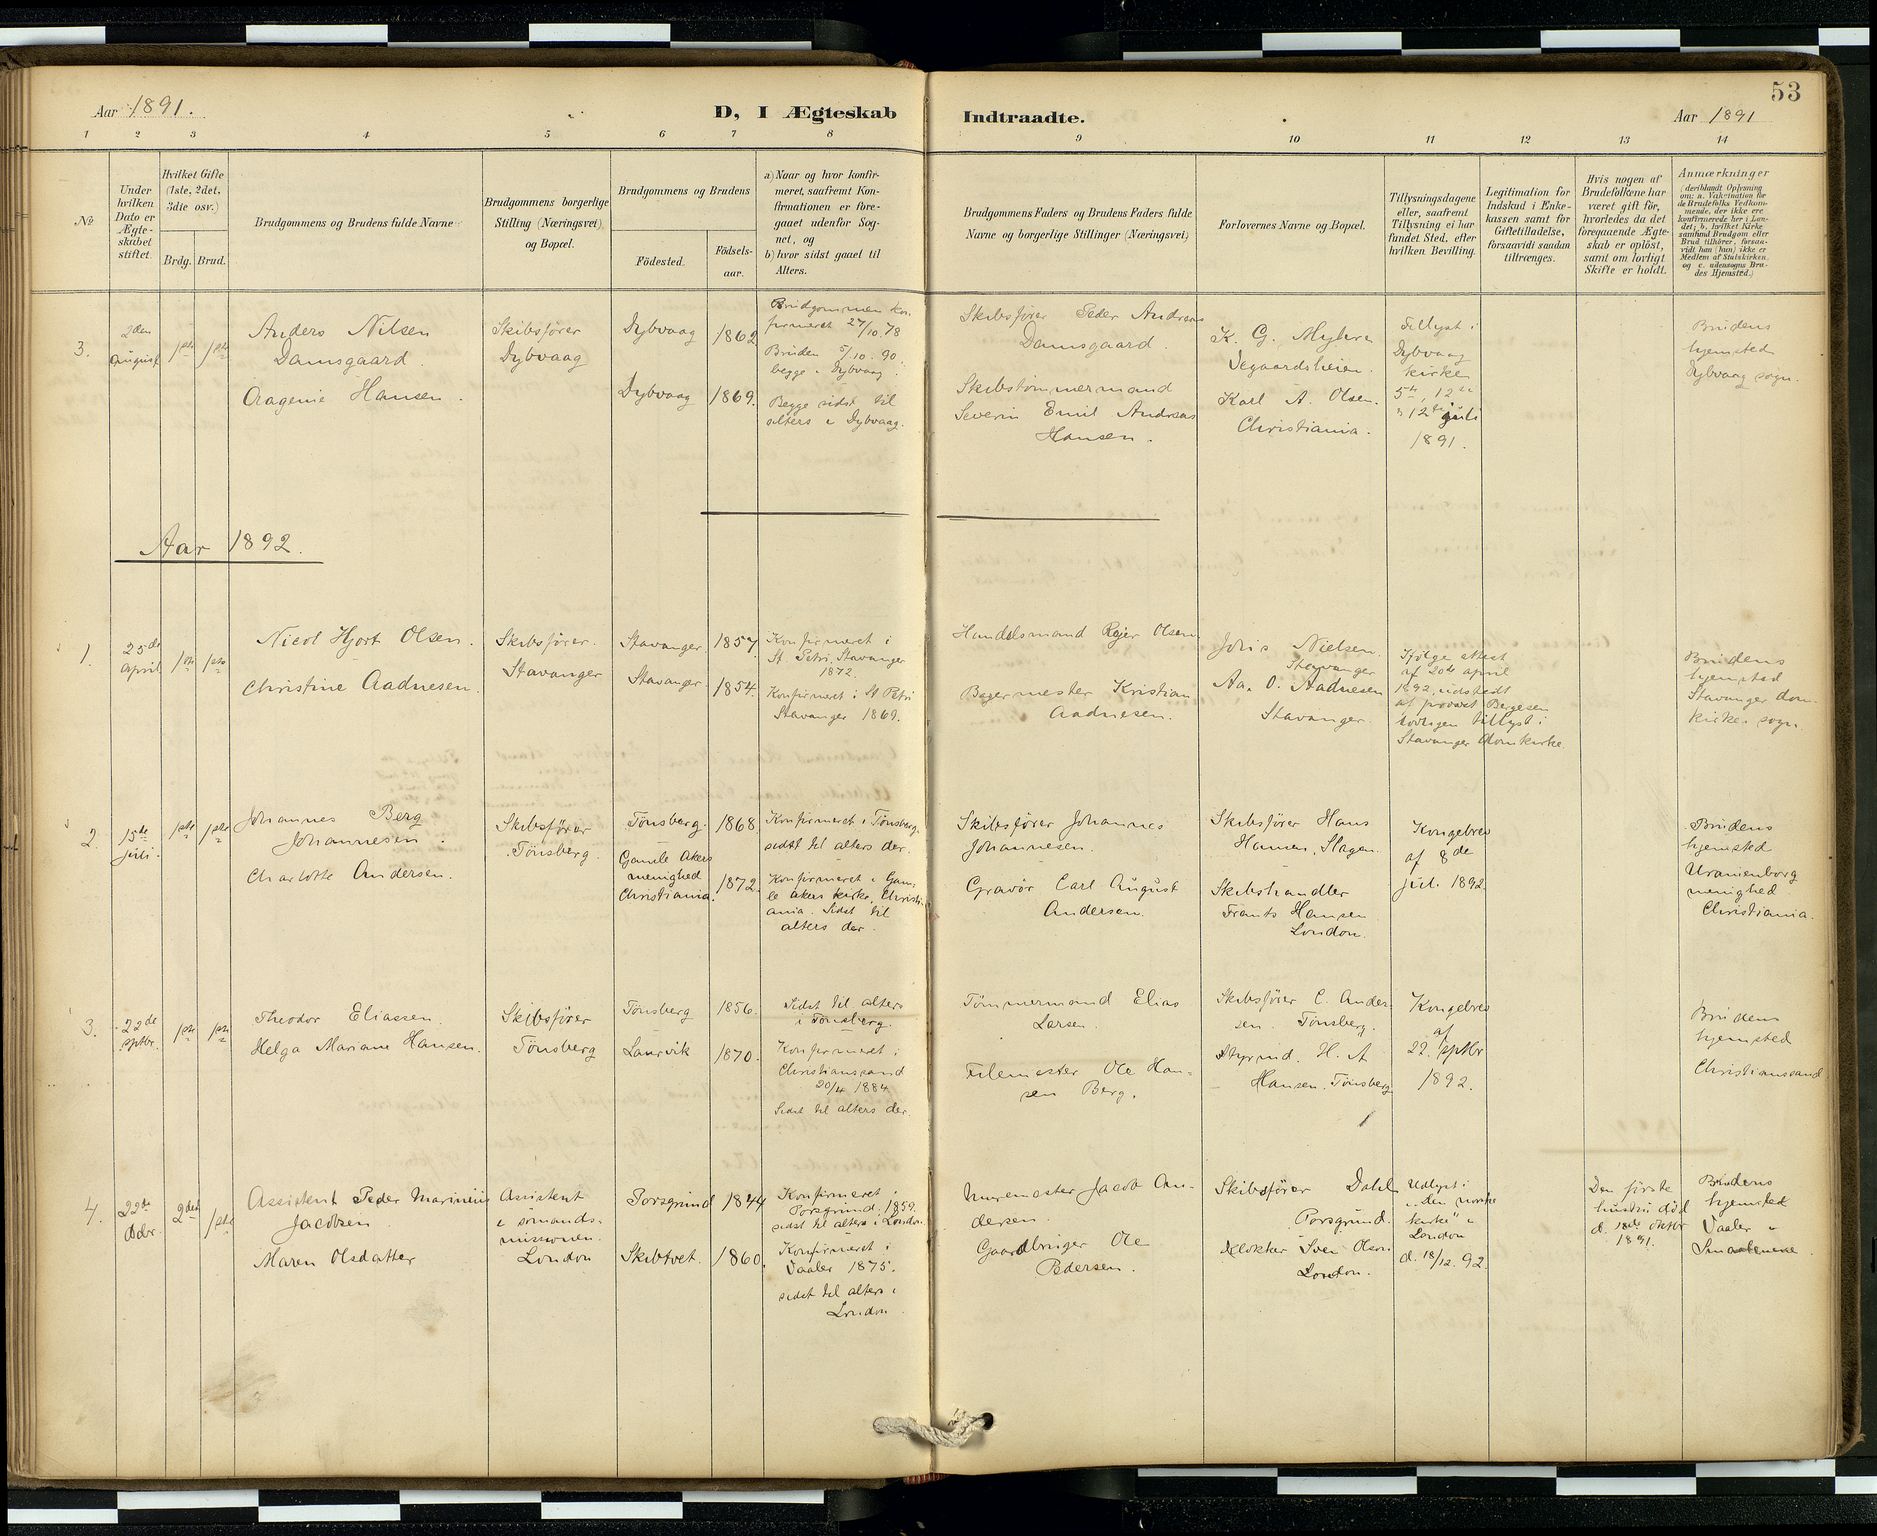 53
Aar 1891.
D, I Ægteskab Indtraadte.
Aar 1891
1 2 3 4 5 6 7 8 9 10 11 12 13 14
No
Under hvilken Dato er Ægte-skabet stiftet.
Hvilket Gifte (1ste, 2det, 3die osv.)
Brdg. Brud.
Brudgommens og Brudens fulde Navne
Brudgommens borgerlige Stilling (Næringsvei) og Bopæl.
Brudgommens og Brudens
Födested.
Födsels-aar.
a) Naar og hvor konfir-
meret, saafremt Kon-
firmationen er fore-
gaaet udenfor Sog-
net, og
b) hvor sidst gaaet til
Alters.
Brudgommens Faders og Brudens Faders fulde
Navne og borgerlige Stillinger (Næringsvei)
Forlovernes Navne og Bopæl.
Tillysningsdagene
eller, saafremt
Tillysning ei har
fundet Sted, efter
hvilken Bevilling.
Legitimation for
Indskud i Enke-
kassen samt for
Giftetilladelse,
forsaavidt saadan
tiltrænges.
Hvis nogen af
Brudefolkene har
været gift för,
hvorledes da det
foregaaende Ægte-
skab er oplöst,
samt om lovligt
Skifte er holdt.
Anmærkninger
(deriblandt Oplysning
om: a. Vakcination for
de Brudefolks Vedkom-
mende, der ikke ere
konfirmerede her i Lan-
det; b. hvilket Kirke
samfund Brudgom eller
Brud tilhörer, forsaa-
vidt han (hun) ikke er
Medlem af Statskirken,
og c. udensogns Bru-
des Hjemsted.)
3.
2den
August
1ste
1ste
Anders Nilsen
Damsgaard.
Aagenie Hansen.
Skibsfører
Dybvaag
Dybvaag
1862
Dybvaag
1869.
Brudgommen kon-
firmeret 27/10 78
Bruden 5/10. 90.
begge i Dybvaag.
Begge sidst til
alters i Dybvaag.
Skibsfører Peder Andreas
Damsgaard.
Skibstømmermand
Severin Emil Andreas
Hansen.
K. G. Myhre
Vegaardsheien.
Karl A. Olsen.
Christiania.
Tillyst i
Dybvaag
kirke
5te, 12te
juli
1891.
Brudens
hjemsted
Dybvaag sogn.
Aar 1892.
1.
25de
April
1ste
1ste
Nicol Hjort Olsen.
Christine Aadnesen.
Skibsfører.
Stavanger
Stavanger
1857
Stavanger
1854.
Konfirmeret i
St Petri, Stavanger
1872.
Konfirmeret i St Petri
Stavanger 1869.
Handelsmand Reier Olsen.
Bagermester Kristian
Aadnesen.
Nielsen.
Stavanger
Aa. O. Aadnesen
Stavanger.
Ifølge attest
af 20de april
1892, udstedt
af provst Bergesen
lovligen tillyst i
Stavanger domkirke.
Brudens
hjemsted
Stavanger dom-
kirkes sogn.
2.
15de
juli.
1ste
1ste
Johannes Berg
Johannesen.
Charlotte Andersen.
Skibsfører
Tønsberg.
Tønsberg.
1868
Gamle Akers
menighed
Christiania.
1872.
Konfirmeret i Tønsberg.
sidst til alters der.
Konfirmeret i Gam-
le akers kirke, Christi-
ania. Sidst til
alters der.
Skibsfører Johannes
Johannesen.
Gravør Carl August
Andersen.
Skibsfører Hans
Hansen, Slagen.
Skibshandler
Frants Hansen
London.
Kongebrev
af 8de
juli 1892
Brudens
hjemsted
Uranienborg
menighed
Christiania.
3.
22de
sptbr.
1ste
1ste
Theodor Eliassen.
Helga Mariane Hansen.
Skibsfører
Tønsberg
Tønsberg
1856.
Laurvik
1870.
Sidst til alters
i Tønsberg.
Konfirmeret i
Christianssand
20/4 1884
Sidst til alters der.
Tømmermand Elias
Larsen.
Filemester Ole Han-
sen Berg.
Skibsfører C. Ander-
sen. Tønsberg.
Styrmd. H. A
Hansen. Tønsberg
Kongebrev
af
22. sptbr
1892.
Brudens
hjemsted
Christianssand
4.
22de
Dcbr.
2det
1ste
Assistent Peder Marinius
Jacobsen
Maren Olsdatter
Assistent
i sømands-
missionen.
London
Porsgrund
1844
Skibtvet.
1860.
Konfirmeret i
Porsgrund, 1859.
sidst til alters i London.
Konfirmeret i
Vaaler 1875.
sidst til alters i
London.
Murmester Jacob An-
dersen.
Gaardbruger Ole
Pedersen.
Skibsfører Dahl
Porsgrund.
Klokker Sven Olsen
London.
Udlyst i
„den norske
kirke" i
London
d. 18/12. 92.
Den første
hustru død
d. 18de oktbr
1891.
Brudens
hjemsted
Vaaler i
Smaalenene.